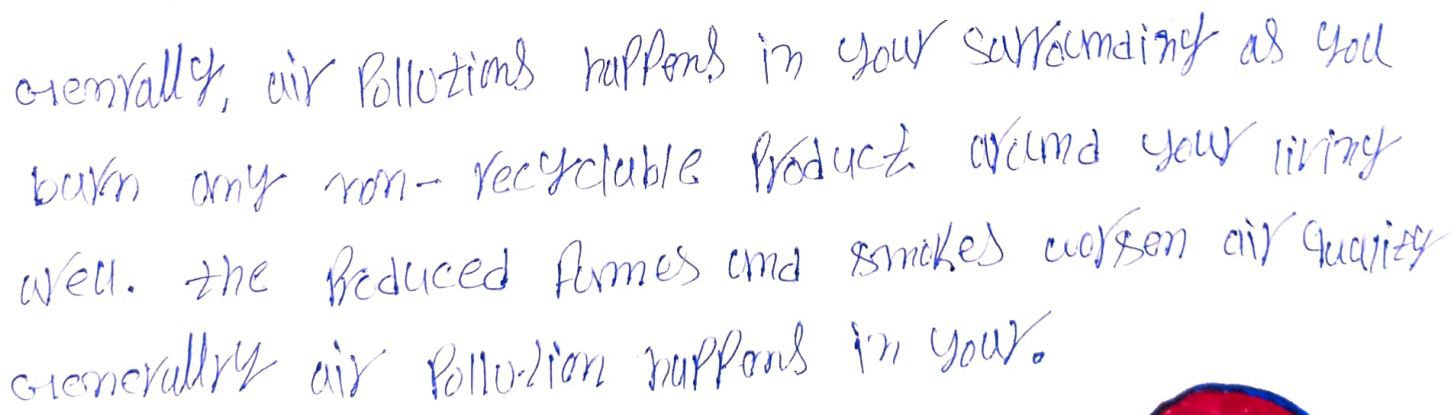 Genrally, air Pollutions happens in your surrounding as you
burn any non- recyclable Product around your living
area. the Produced fumes and smokes worsen air quality
Generallry air Pollution happens in your.